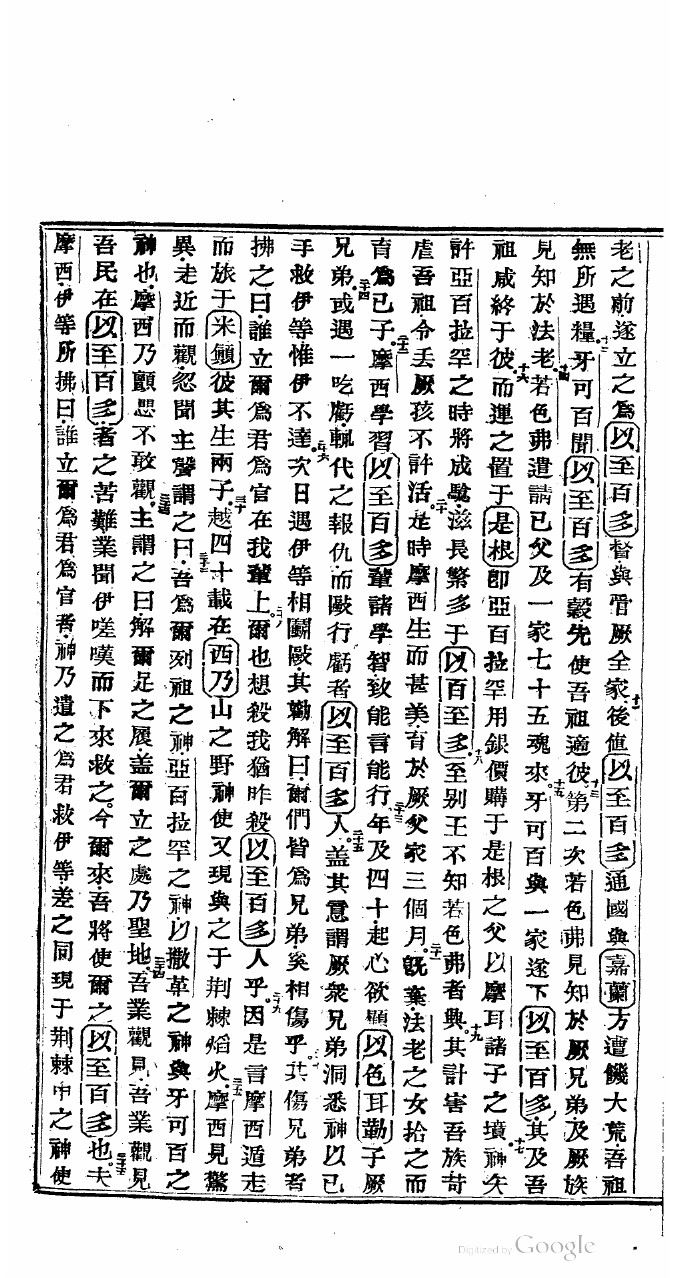 老之前遂立之爲以至百多督與管厥全家後値以至百多通國與嘉蘭方遭饑大荒吾祖
無所遇糧十二牙可百聞以至百多有穀先使吾祖適彼十三第二次若色弗見知於厥兄弟及厥族
見知於法老十四若色弗遣請已父及一家七十五魂來十五牙可百與一家遂下以至百多其及吾
祖咸終于彼十六而運之置于是根卽亞百拉罕用銀價購于是根之父以摩耳諸子之墳十七神矢
許亞百拉罕之時將成驗滋長繁多于以百至多十八至別王不知若色弗者興十九其計害吾族苛
虐吾祖令丢厥孩不許活二十是時摩西生而甚美育於厥父家三個月二十一旣棄法老之女拾之而
育爲已子二十二摩西學習以至百多輩諸學智致能言能行二十三年及四十起心欲顧以色耳勒子厥
兄弟二十四或遇一吃虧輒代之報仇而毆行虧者以至百多人二十五盖其意謂厥衆兄弟洞悉神以已
手救伊等惟伊不達二十六次日遇伊等相鬭毆其勸解曰爾們皆爲兄弟奚相傷乎二十七其傷兄弟者
拂之曰誰立爾爲君爲官在我輩上二十八爾也想殺我猶昨殺以至百多人乎二十九因是言摩西遁走
而旅于米顚彼其生兩子三十越四十載在西乃山之野神使又現與之于荆棘焰火三十一摩西見驚
異走近而觀忽聞主聲謂之曰三十二吾爲爾列祖之神亞百拉罕之神以撒革之神與牙可百之
神也摩西乃顫思不敢觀三十三主謂之曰解爾足之履盖爾立之處乃聖地三十四吾業觀見吾業觀見
吾民在以至百多者之苦難業聞伊嗟嘆而下來救之今爾來吾將使爾之以至百多也三十五夫
摩西伊等所拂曰誰立爾爲君爲官者神乃遣之爲君救伊等差之同現于荆棘中之神使
Digitized by Google